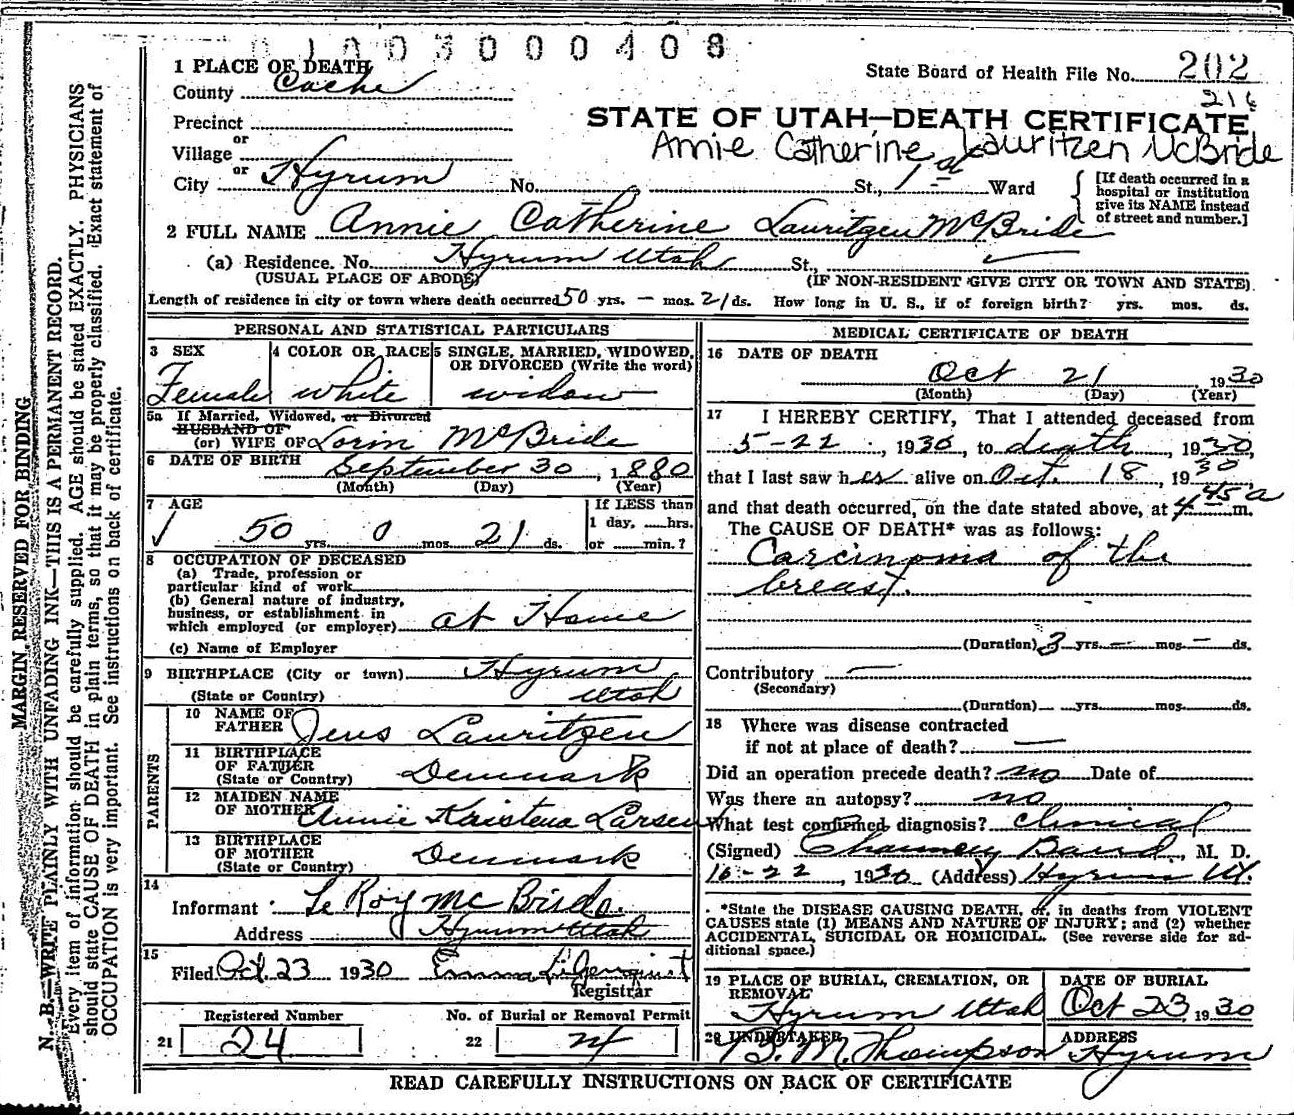 01003000408
1 PLACE OF DEATH
County Cache
State Board of Health File No. 202
216
STATE OF UTAH—DEATH CERTIFICATE
Annie Catherine Lauritzen McBride
Precinct
or
Village
or
City Hyrum No. St., 1st Ward
[If death occurred in a hospital or institution give its NAME instead of street and number.]
2 FULL NAME Annie Catherine Lauritzen McBride
(a) Residence. No. Hyrum Utah St.,
(USUAL PLACE OF ABODE) (IF NON-RESIDENT GIVE CITY OR TOWN AND STATE)
Length of residence in city or town where death occurred 50 yrs. — mos. 21 ds. How long in U. S., if of foreign birth? yrs. mos. ds.
PERSONAL AND STATISTICAL PARTICULARS
3 SEX
Female
4 COLOR OR RACE
white
5 SINGLE, MARRIED, WIDOWED,
OR DIVORCED (Write the word)
widow
5a If Married, Widowed, or Divorced
HUSBAND OF
(or) WIFE OF Lorin McBride
6 DATE OF BIRTH September 30, 1880
(Month) (Day) (Year)
7 AGE
50 yrs. 0 mos. 21 ds.
If LESS than
1 day, hrs.
or min.?
8 OCCUPATION OF DECEASED
(a) Trade, profession or
particular kind of work
(b) General nature of industry,
business, or establishment in
which employed (or employer) at Home
(c) Name of Employer
9 BIRTHPLACE (City or town) Hyrum
(State or Country) Utah
PARENTS
10 NAME OF
FATHER Jens Lauritzen
11 BIRTHPLACE
OF FATHER
(State or Country) Denmark
12 MAIDEN NAME
OF MOTHER Annie Kristena Larsen
13 BIRTHPLACE
OF MOTHER
(State or Country) Denmark
14
Informant LeRoy McBride.
Address Hyrum Utah
15
Filed Oct 23 1930 Emma Liljenquist
Registrar
Registered Number
21 24
No. of Burial or Removal Permit
22 24
MEDICAL CERTIFICATE OF DEATH
16 DATE OF DEATH
Oct 21, 1930
(Month) (Day) (Year)
17 I HEREBY CERTIFY, That I attended deceased from
5-22, 1930, to death, 1930,
that I last saw her alive on Oct. 18, 1930
and that death occurred, on the date stated above, at 4 45 a m.
The CAUSE OF DEATH* was as follows:
Carcinoma of the
breast.
(Duration) 3 yrs. — mos. — ds.
Contributory —
(Secondary)
(Duration) — yrs. mos. ds.
18 Where was disease contracted
if not at place of death? —
Did an operation precede death? no Date of
Was there an autopsy? no
What test confirmed diagnosis? clinical
(Signed) Chauncey Baird, M. D.
10-22, 1930 (Address) Hyrum Ut.
*State the DISEASE CAUSING DEATH, or, in deaths from VIOLENT
CAUSES state (1) MEANS AND NATURE OF INJURY; and (2) whether
ACCIDENTAL, SUICIDAL OR HOMICIDAL. (See reverse side for ad-
ditional space.)
19 PLACE OF BURIAL, CREMATION, OR
REMOVAL
Hyrum Utah
DATE OF BURIAL
Oct 23, 1930
20 UNDERTAKER
B. M. Thompson
ADDRESS
Hyrum
READ CAREFULLY INSTRUCTIONS ON BACK OF CERTIFICATE
MARGIN RESERVED FOR BINDING
N. B.—WRITE PLAINLY WITH UNFADING INK—THIS IS A PERMANENT RECORD.
Every item of information should be carefully supplied. AGE should be stated EXACTLY. PHYSICIANS
should state CAUSE OF DEATH in plain terms, so that it may be properly classified. Exact statement of
OCCUPATION is very important. See instructions on back of certificate.